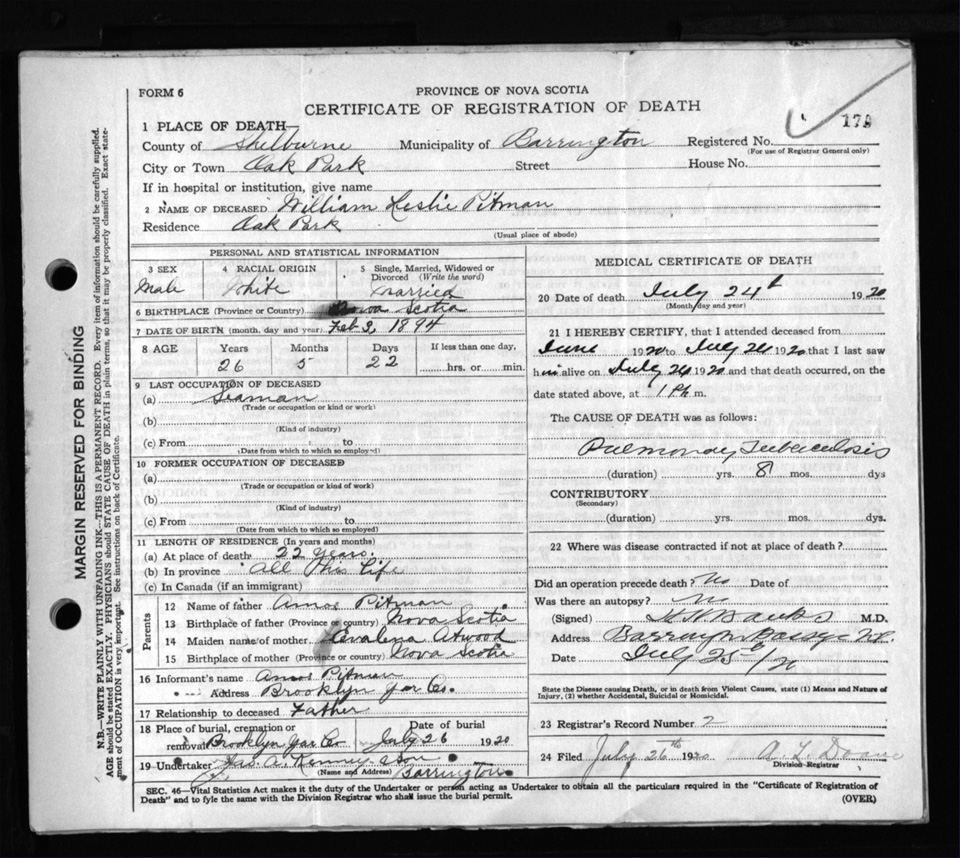 FORM 6
PROVINCE OF NOVA SCOTIA
CERTIFICATE OF REGISTRATION OF DEATH
179
1 PLACE OF DEATH
County of Shelburne Municipality of Barrington Registered No.
(For use of Registrar General only)
City or Town Oak Park Street House No.
If in hospital or institution, give name
2 NAME OF DECEASED William Leslie Pitman
Residence Oak Park
(Usual place of abode)
PERSONAL AND STATISTICAL INFORMATION
3 SEX
Male
4 RACIAL ORIGIN
White
5 Single, Married, Widowed or Divorced (Write the word)
Married
6 BIRTHPLACE (Province or Country) Nova Scotia
7 DATE OF BIRTH (month, day and year) Feb 2, 1894
8 AGE Years Months Days If less than one day,
26 5 22 hrs. or min.
9 LAST OCCUPATION OF DECEASED
(a) Seaman
(Trade or occupation or kind or work)
(b)
(Kind of industry)
(c) From to
(Date from which to which so employed)
10 FORMER OCCUPATION OF DECEASED
(a)
(Trade or occupation or kind of work)
(b)
(Kind of industry)
(c) From to
(Date from which to which so employed)
11 LENGTH OF RESIDENCE (In years and months)
(a) At place of death 22 years.
(b) In province All This Life
(c) In Canada (if an immigrant)
Parents
12 Name of father Amos Pitman
13 Birthplace of father (Province or country) Nova Scotia
14 Maiden name of mother Evalena Atwood
15 Birthplace of mother (Province or country) Nova Scotia
16 Informant's name Amos Pitman
Address Brooklyn Yar Co.
17 Relationship to deceased Father
18 Place of burial, cremation or removal Brooklyn Yar Co
Date of burial
July 26 1920
19 Undertaker Jas. A. Kenney & Son
(Name and Address) Barrington
MEDICAL CERTIFICATE OF DEATH
20 Date of death July 24th 1920
(Month, day and year)
21 I HEREBY CERTIFY, that I attended deceased from
June 1920 to July 24 1920 that I last saw
him alive on July 24 1920 and that death occurred, on the
date stated above, at 1 P m.
The CAUSE OF DEATH was as follows:
Pulmonary Tuberculosis
(duration) yrs. 8 mos. dys
CONTRIBUTORY
(Secondary)
(duration) yrs. mos. dys.
22 Where was disease contracted if not at place of death?
Did an operation precede death? No Date of
Was there an autopsy? No
(Signed) Banks M.D.
Address Barrington Passage N.S.
Date July 25th/20
State the Disease causing Death, or in death from Violent Causes, state (1) Means and Nature of
Injury, (2) whether Accidental, Suicidal or Homicidal.
23 Registrar's Record Number 2
24 Filed July 26th 1920 A. L. Doane
Division Registrar
SEC. 46—Vital Statistics Act makes it the duty of the Undertaker or person acting as Undertaker to obtain all the particulars required in the "Certificate of Registration of
Death" and to fyle the same with the Division Registrar who shall issue the burial permit.
(OVER)
MARGIN RESERVED FOR BINDING
N.B.—WRITE PLAINLY WITH UNFADING INK—THIS IS A PERMANENT RECORD. Every item of information should be carefully supplied.
AGE should be stated EXACTLY. PHYSICIANS should STATE CAUSE OF DEATH in plain terms, so that it may be properly classified. Exact state-
ment of OCCUPATION is very important. See instructions on back of Certificate.